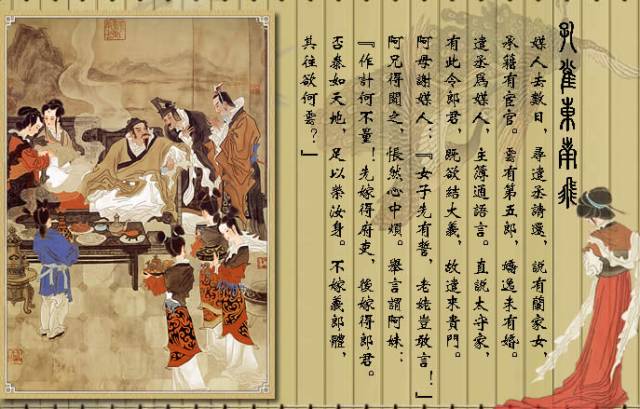 孔雀東南飛
媒人去數日，尋遣丞請還，說有蘭家女，
承籍有宦官。雲有第五郎，嬌逸未有婚。
遣丞為媒人，主簿通語言。直說太守家，
有此令郎君，既欲結大義，故遣來貴門。
阿母謝媒人：『女子先有誓，老姥豈敢言！』
阿兄得聞之，悵然心中煩。舉言謂阿妹：
『作計何不量！先嫁得府吏，後嫁得郎君。
否泰如天地，足以榮汝身。不嫁義郎體，
其往欲何雲？』